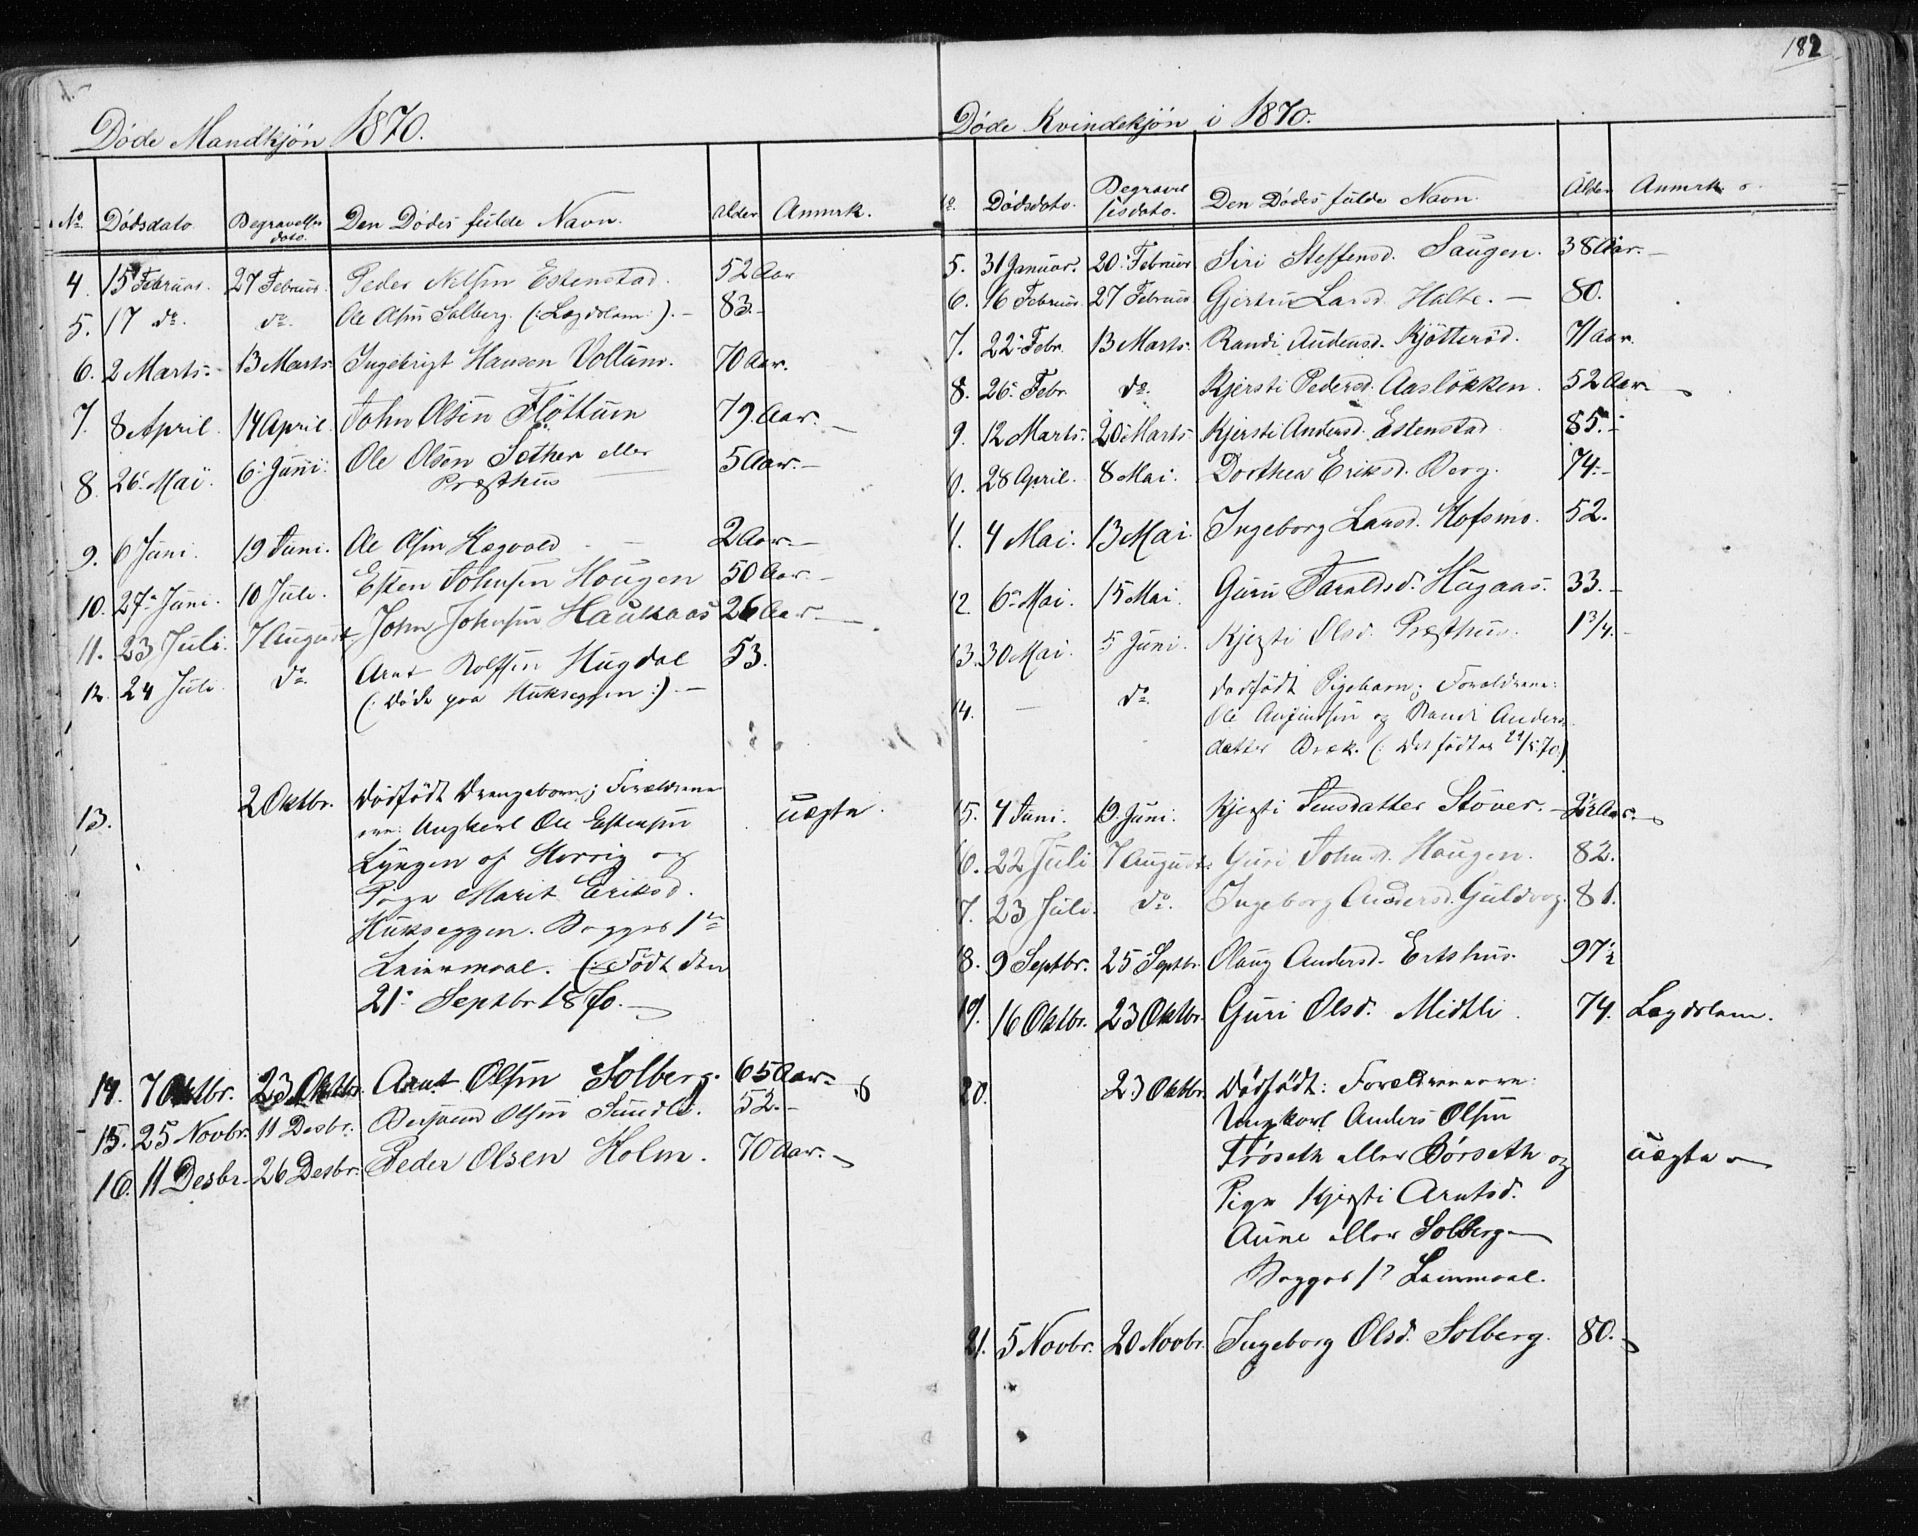 182
Døde Mandkjøn 1870.
No. Dødsdato Begravelses dato. Den Dødes fulde Navn. Alder Anmrk.
4. 15 Februar. 27 Februar. Peder Nilsen Estenstad. 52 Aar
5. 17 do. do. Ole Olsen Solberg. (: Lægdslem :). – 83. –
6. 2 Marts. 13 Marts. Ingebrigt Hansen Voltum. 70 Aar.
7. 8 April. 14 April. John Olsen Fløttum 79. Aar. –
8. 26. Mai. 6. Juni. Ole Olsen Sæther eller 5 Aar. –
Præsthus
9. 6 Juni. 19 Juni. Ole Olsen Kregvold – – 2 Aar. –
10. 27. Juni. 10 Juli. Esten Johnsen Hougen 50 Aar. –
11. 23 Juli. 7 August John Johnsen Haukaas 26 Aar –
12. 24 Juli. do. Arnt Rolfsen Hugdal 53.
(: Døde paa Hukseggen :). –
13. 2 Oktbr. Dødfødt Drengebarn; Forældrene uægte.
ere: Ungkarl Ole Estensen
Lyngen af Horrig og
Pige Marit Eriksd.
Hukseggen. Begges 1ste
Leiermaal. (: Født den
21. Septbr 1870. –
14. 7 Oktbr. 23 Oktbr. Arnt Olsen Solberg. 65 Aar –
15. 25 Novbr. 11 Desbr. Olsen Sundli. 52. –
16. 11 Desbr. 26 Desbr. Peder Olsen Holm. 70 Aar. –
Døde Kvindekjøn i 1870.
No. Dødsdato. Begravelsesdato. Den Dødes fulde Navn. Alder Anmrk.
5. 31 Januar. 20. Februar Siri Steffensd. Saugen. 38 Aar. –
6. 16 Februar. 27 Februar Gjertru Larsd. Halte. – 80.
7. 22. Febr. 13 Marts. Randi Audensd. Kjøtterød. 71 Aar.
8. 26. Febr. do. Kjersti Pedersd. Aasløkken. 52 Aar
9. 12 Marts. 20 Marts. Kjersti Andersd. Estenstad. 85. –
0. 28 April. 8 Mai. Dorthea Eriksd. Berg. 74. –
1. 4 Mai. 13 Mai. Ingeborg Larsd. Hofsmo. 52.
12. 6. Mai. 15 Mai. Guru Taraldsd. Hugaas. 33. –
13. 30 Mai. 5 Juni. Kjersti Olsd. Præsthus. 1 3/4. –
14. – do. Dødfødt Pigebarn; Forældrene:
Ole og Randi Anders
datter Bræk. (: Det født 29/5 70.)
15. 4 Juni. 19. Juni. Kjersti Jensdatter Støver. – Aar. –
6. 22 Juli 7 August. Guri Johnsd. Haugen. 82.
7. 23 Juli. do. Ingeborg Andersd. Guldvog. 81.
8. 9 Septbr. 25 Septbr. Olaug Andersd. Ertshus. 97 1/2
19. 16 Oktbr. 23 Oktbr. Guri Olsd. Midtli. 74. Lægdslem.
20. 23 Oktbr. Dødfødt: Forældrene ere:
Ungkarl Anders Olsen
Frøseth eller Børseth og uægte
Pige Kjersti Arntsd.
Aune eller Solberg –
Begges 1. Leiermaal.
21. 5 Novbr. 20 Novbr. Ingeborg Olsd. Solberg. 80. –